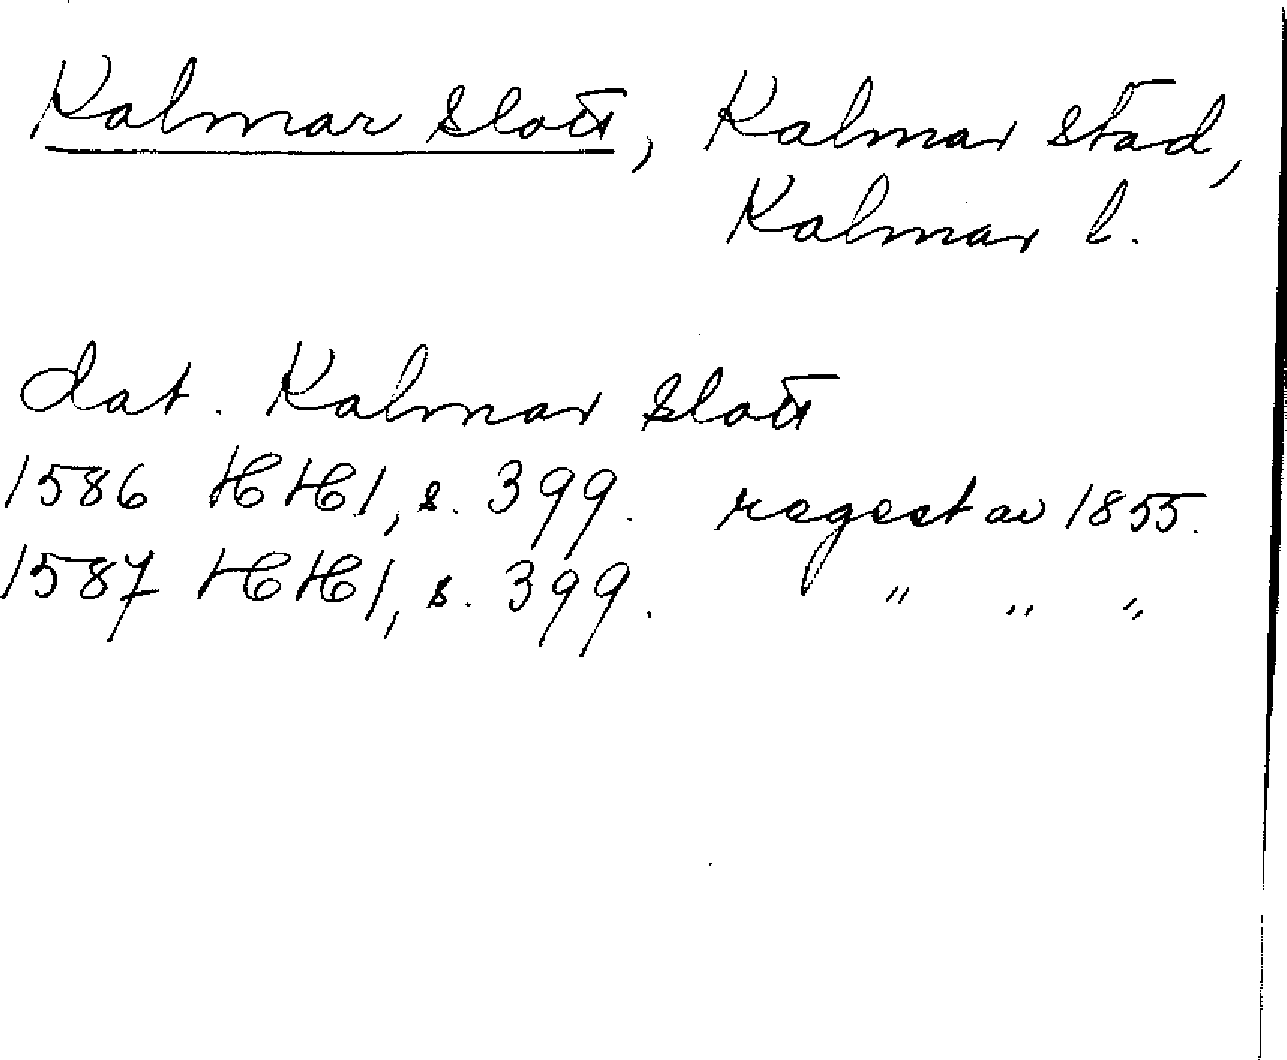 Kalmar slott, Kalmar stad,
Kalmar l.
dat. Kalmar slott
1586 HH1, s. 399. regest av 1855.
1587 HH1, s. 399. " " "